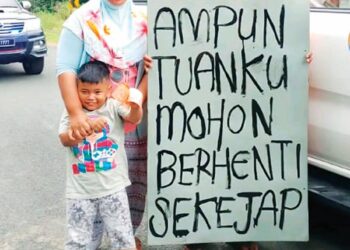 AMPUN
TUANKU
MOHON
BERHENTI
SEKEJAP